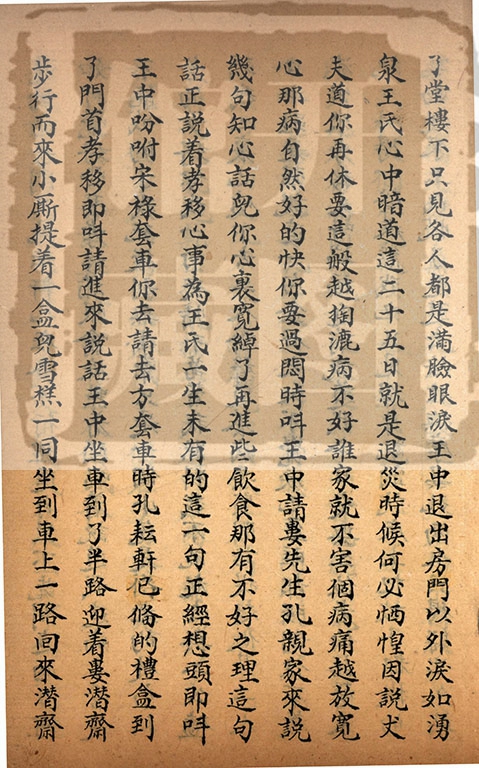 了堂樓下只見各人都是滿臉眼淚王中退出房門以外淚如湧
泉王氏心中暗道這二十五日就是退災時候何必恓惶因説丈
夫道你再休要這般越掏漉病不好誰家就不害個病痛越放寬
心那病自然好的快你要過悶時叫王中請婁先生孔親家來説
幾句知心話兒你心裏寬綽了再進些飲食那有不好之理這句
話正説着孝移心事為王氏一生未有的這一句正經想頭即叫
王中吩咐宋祿套車你去請去方套車時孔耘軒已俻的禮盒到
了門首孝移即叫請進來説話王中坐車到了半路迎着婁潛齋
步行而來小厮提着一盒兒雪糕一同坐到車上一路回來潛齋